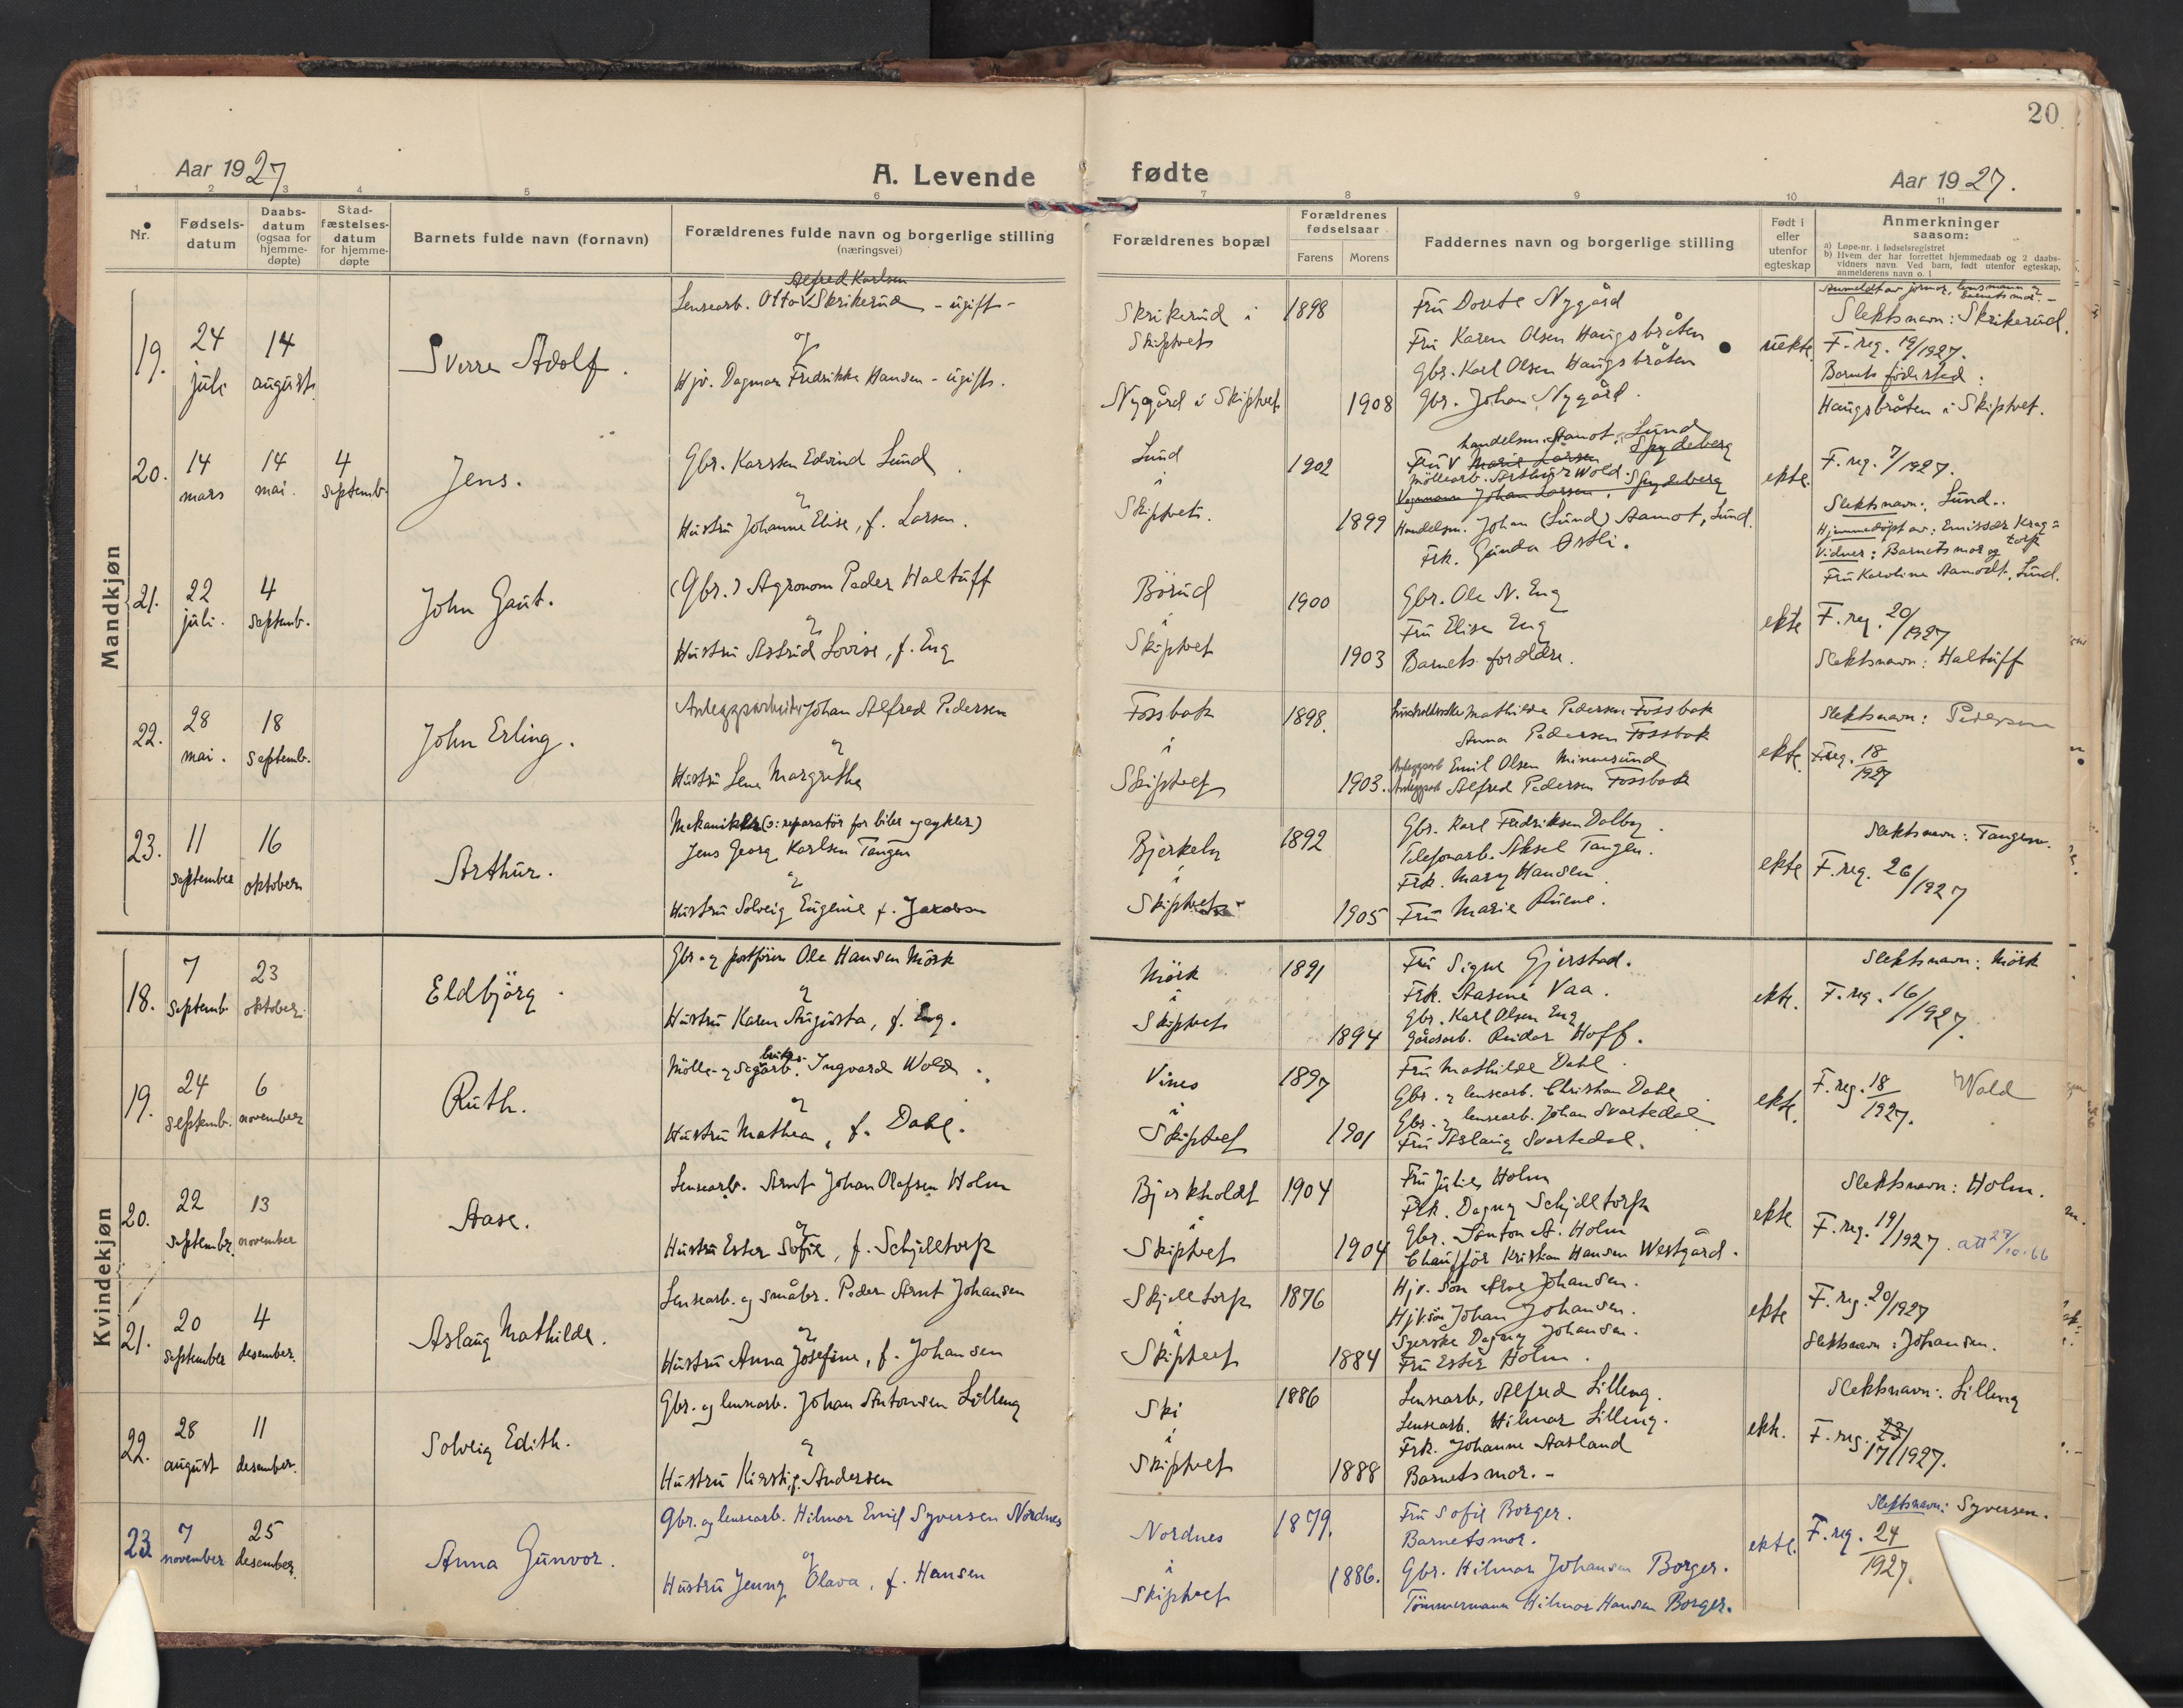 20
Aar 1927
A. Levende fødte
Aar 1927.
1 2 3 4 5 6 7 8 9 10 11
Nr.
Fødsels-
datum
Daabs-
datum
(ogsaa for
hjemme-
døpte)
Stad-
fæstelses-
datum
for hjemme-
døpte
Barnets fulde navn (fornavn)
Forældrenes fulde navn og borgerlige stilling
(næringsvei)
Forældrenes bopæl
Forældrenes
fødselsaar
Farens Morens
Faddernes navn og borgerlige stilling
Født i
eller
utenfor
egteskap
Anmerkninger
saasom:
a) Løpe-nr. i fødselsregistret
b) Hvem der har forrettet hjemmedaab og 2 daabs-
vidners navn. Ved barn, født utenfor egteskap,
anmelderens navn o. l
Mandkjøn
19.
24
juli
14
august
Sverre Adolf.
Alfred Karlsen
Lensearb. Otto Skrikerud - ugift -
og
Hjv. Dagmar Fredrikke Hansen - ugift.
Skrikerud i
Skiptvet
Nygård i Skiptvet
1898
1908
Fru Dorte Nygård
Fru Karen Olsen Haugsbråten
Gbr. Karl Olsen Haugsbråten
Gbr. Johan Nygård.
uekte
Anmeldt av jormor, lensmann og
barnets mor. -
Slektsnavn: Skrikerud.
F. reg. 19/1927.
Barnets födested:
Haugsbråten i Skiptvet.
20.
14
mars
14
mai.
4
septemb.
Jens.
Gbr. Karsten Edvind Lund
og
Hustru Johanne Elise, f. Larsen.
Lund
i
Skiptvet.
1902
1899
handelsm. Aamot, Lund
Fru Marie Larsen Spydeberg
möllearb. Wold. Spydeberg
Vognmann Johan Larsen, Spydeberg
Handelsm. Johan (Lund) Aamot, Lund.
Frk. Gunda Østli.
ekte.
F. reg. 7/1927.
Slektsnavn: Lund.
Hjemmedøpt av: Emissær Krag-
torp
Vidner: Barnets mor og
Fru Karoline Aamodt, Lund.
21.
22
juli.
4
septemb.
John Gaut.
(Gbr.) Agronom Peder Haltuff
og
Hustru Astrid Lovise, f. Eng
Börud
i
Skiptvet
1900
1903
Gbr. Ole N. Eng
Fru Elise Eng
Barnets foreldre.
ekte
F. reg. 20/1927
Slektsnavn: Haltuff
22.
28
mai.
18
septemb.
John Erling.
Anleggsarbeider Johan Alfred Pedersen
og
Hustru Lene Margrethe
Fossbak
i
Skiptvet
1898.
1903.
Mathilde Pedersen Fossbak
Anna Pedersen Fossbak
Anleggsarb Emil Olsen Minnesund
Anleggsarb Alfred Pedersen Fossbak
ekte.
Slektsnavn: Pedersen
F. reg. 18
1927
23.
11
september
16
oktober
Arthur.
Mekaniker (o: reparatör for biler og sykler)
Jens Georg Karlsen Tangen
og
Hustru Solveig Eugenie f. Jacobsen
Bjerkely
i
Skiptvet
1892
1905
Gbr. Karl Fredriksen Dalby.
Telefonarb. Aksel Tangen.
Frk. Mary Hansen.
Fru Marie Ruene.
ekte
Slektsnavn: Tangen.
F. reg. 26/1927
Kvindekjøn
18.
7
septemb.
23
oktober.
Eldbjörg.
Gbr. og postförer Ole Hansen Mörk
og
Hustru Karen Augusta, f. Eng.
Mörk
i
Skiptvet
1891
1894
Fru Signe Gjerstad.
Frk. Aasene Vaa.
Gbr. Karl Olsen Eng
Gårdsarb. Reidar Hoff.
ekte.
Slektsnavn: Mörk
F. reg. 16/1927.
19.
24
septemb.
6
november
Ruth.
Mölle- og sagarb. Ingvard Wold.
og
Hustru Mathea, f. Dahl.
Vines
i
Skiptvet
1897
1901
Fru Mathilde Dahl.
Gbr. og lensearb. Christian Dahl
Gbr. og lensearb. Johan Svartedal
Fru Aslaug Svartedal.
ekte.
F. reg. 18
1927.
Wold
20.
22
septembr.
13
november
Aase.
Lensearb. Arnt Johan Olafsen Holm
og
Hustru Ester Sofie, f. Schjelltorp
Bjerkholdt
i
Skiptvet
1904
1904
Fru Julie Holm
Frk. Dagny Schjelltorp
Gbr. Anton A. Holm
Chauffør Kristian Hansen Westgård.
ekte
Slektsnavn: Holm.
F. reg. 19/1927. att 27/10.66
21.
20
september
4
desember.
Aslaug Mathilde.
Lensearb. og småbr. Peder Arnt Johansen
og
Hustru Anna Josefine, f. Johansen
Skjelltorp
i
Skiptvet
1876
1884
Hjv. sön Arne Johansen.
Hjv. sön Johan Johansen.
Syerske Dagny Johansen.
Fru Ester Holm.
ekte
F. reg. 20/1927
Slektsnavn: Johansen.
22.
28
august
11
desember.
Solveig Edith.
Gbr. og lensearb. Johan Antonsen Lilleng
og
Hustru Kirsti, f. Andersen
Ski
i
Skiptvet
1886
1888
Lensearb. Alfred Lilleng.
Lensearb. Hilmar Lilleng.
Frk. Johanne Aasland
Barnets mor. -
ekte.
Slektsnavn: Lilleng
F. reg. 23
17/1927.
23.
7
november
25
desember.
Anna Gunvor.
Gbr. og lensearb. Hilmar Emil Syversen Nordnes
og
Hustru Jenny Olava, f. Hansen
Nordnes
i
Skiptvet
1879.
1886.
Fru Sofie Borger.
Barnets mor.
Gbr. Hilmar Johansen Borger.
Tömmermann Hilmar Hansen Borger.
ekte.
Slektsnavn: Syversen.
F. reg. 24
1927.